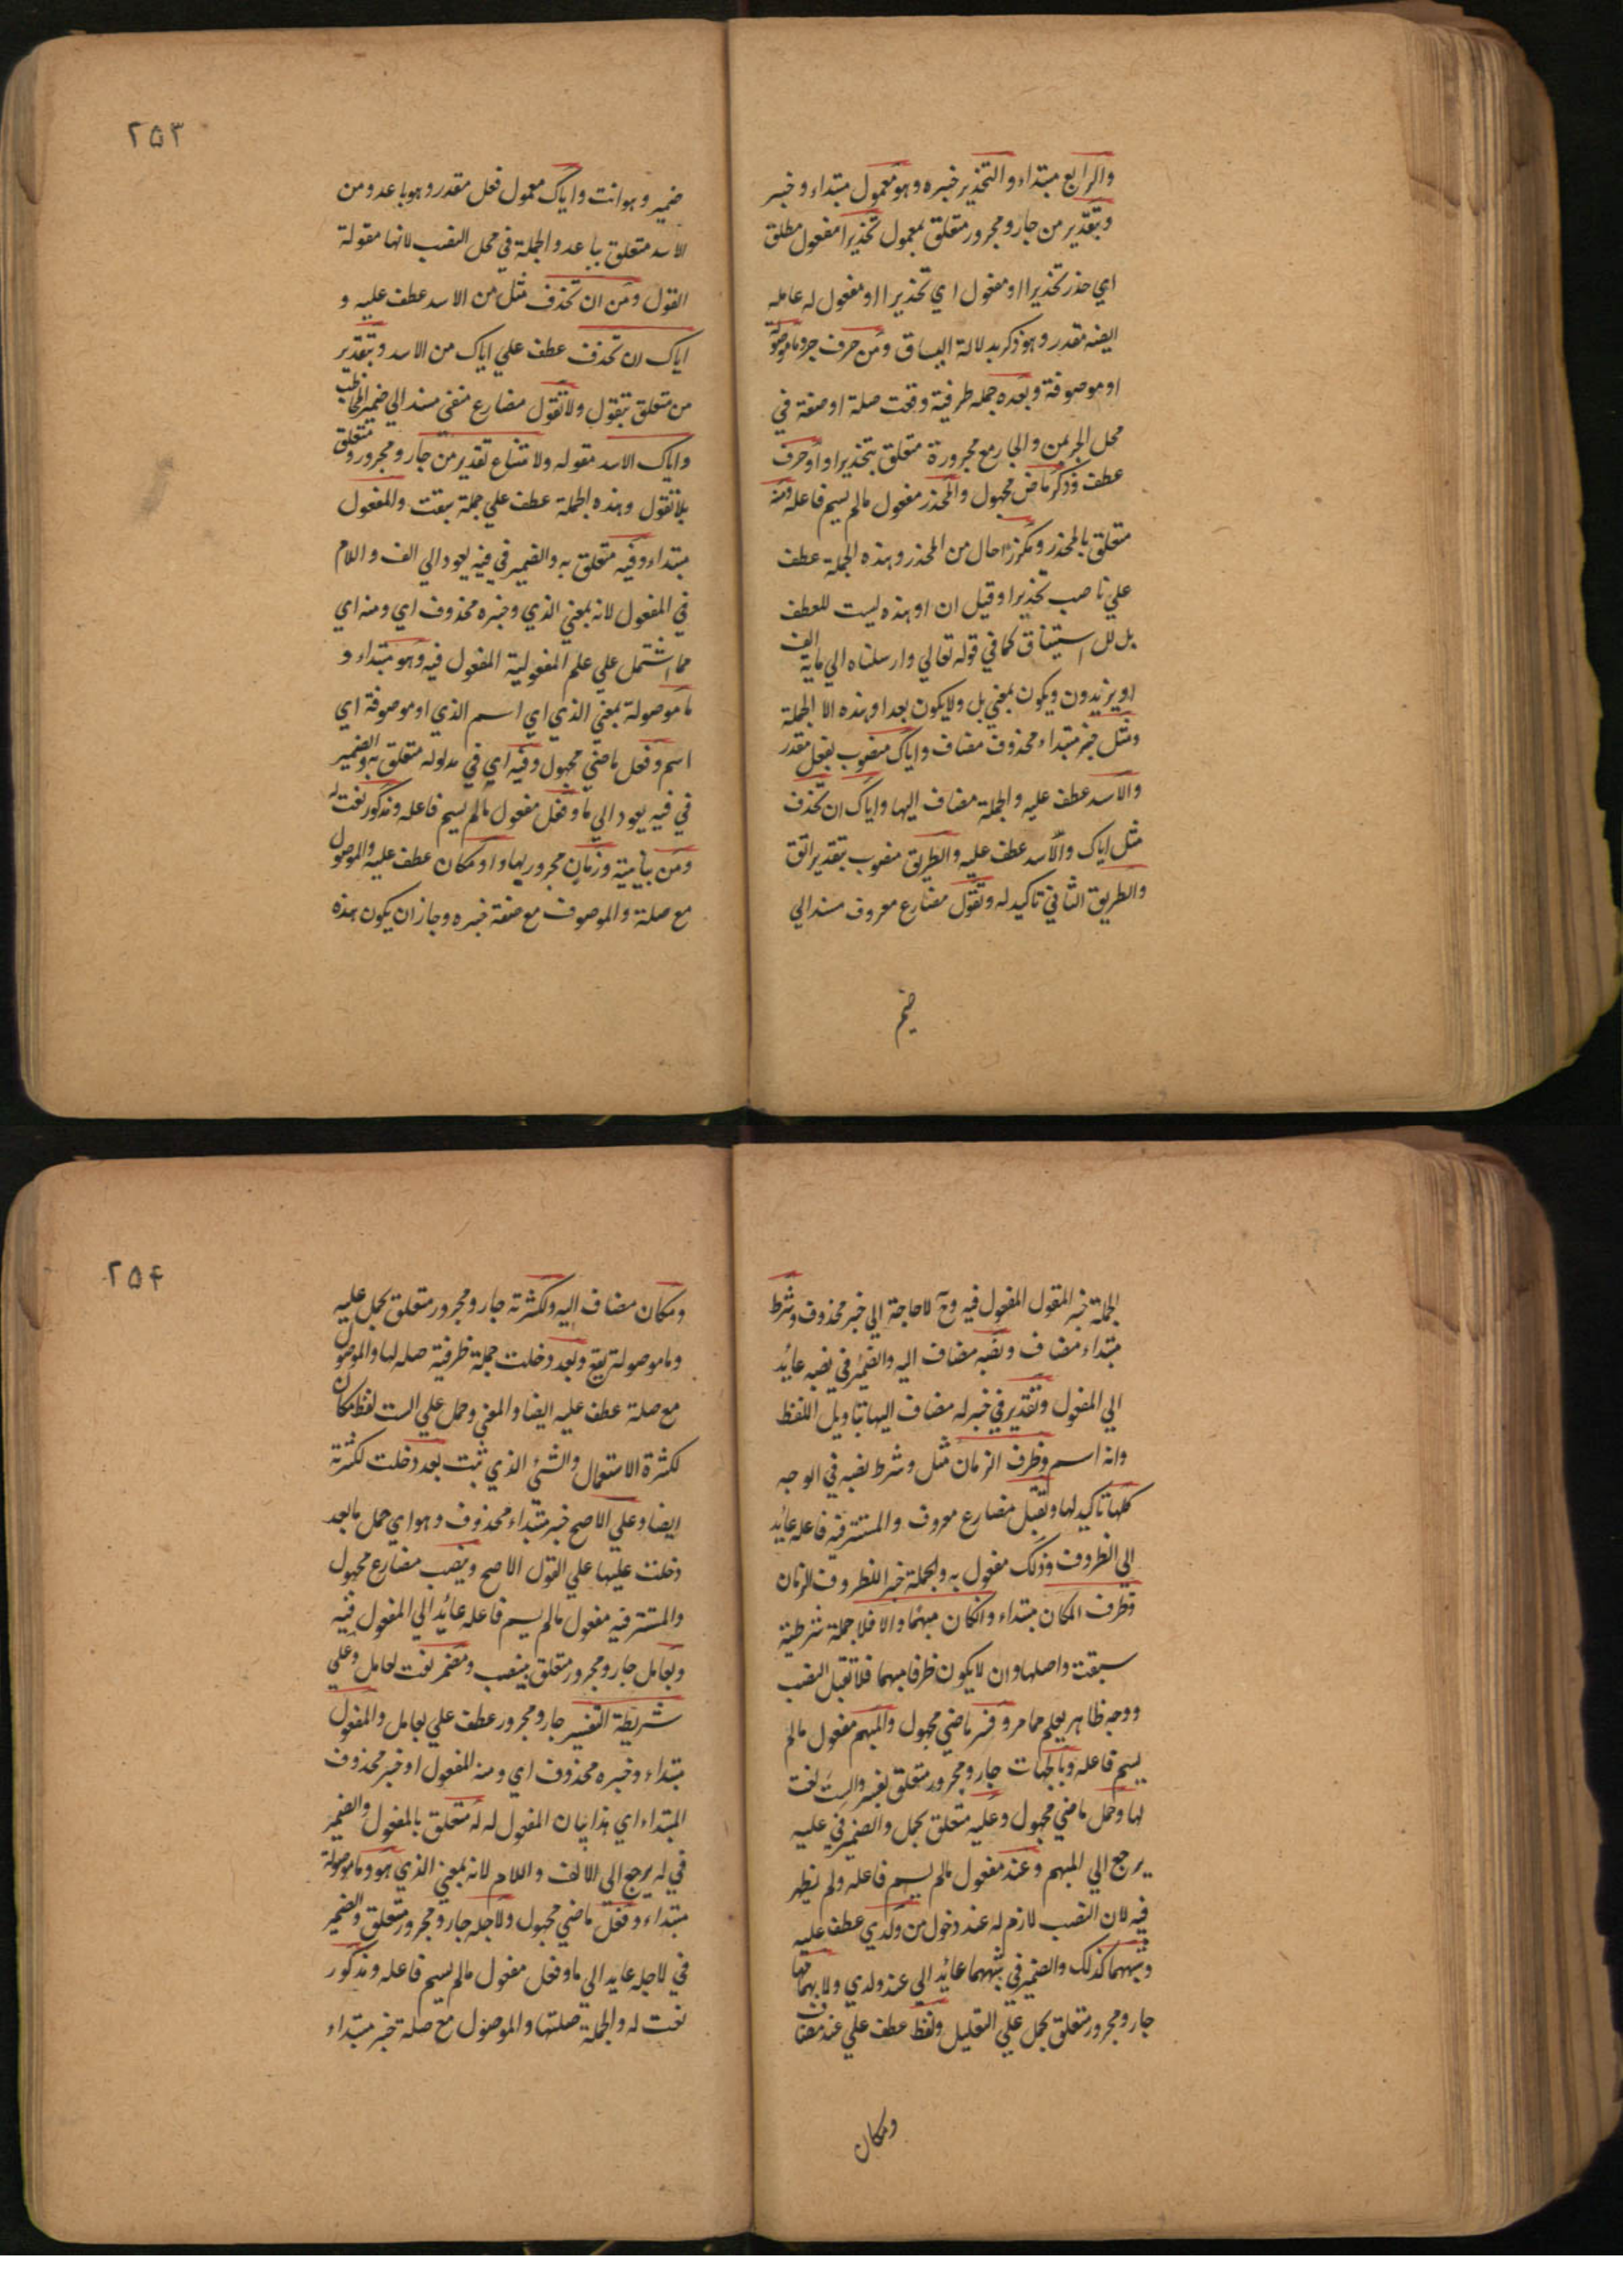 والرابع مبتداء والتحذير خبره وهو معمول مبتداء وخبر
وبتقدير من جار ومجرور متعلق بمعمول تحذيرا مفعول مطلق
اي حذر تحذيرا او مفعول اي تحذيرا او مفعول له عامله
ايضه مقدر وهو ذكر بدلالة السياق ومن حرف جر وما موصولة
او موصوفة وبعده جمله ظرفية وقعت صلة او صفة في
محل الجر بمن والجار مع مجروره متعلق بتحذيرا واو حرف
عطف وذكر ماض مجهول والمحذر مفعول مالم يسم فاعله ومنه
متعلق بالمحذر ومكررا حال من المحذر وهذه الجملة عطف
علي ناصب تحذيرا وقيل ان او هذه ليست للعطف
بل للاستيناف كما في قوله تعالي وارسلناه الي ماية الف
او يزيدون ويكون بمعني بل ولا يكون بعد او هذه الا الجملة
ومثل خبر مبتداء محذوف مضاف واياك منصوب بفعل مقدر
والاسد عطف عليه والجملة مضاف اليها واياك ان تحذف
مثل اياك والاسد عطف عليه والطريق منصوب بتقدير اتق
والطريق الثاني تاكيد له وتقول مضارع معروف مسند الي
ضمير
٢٥٣
ضمير وهو انت واياك معمول فعل مقدر وهو باعد ومن
الاسد متعلق بباعد والجملة في محل النصب لانها مقولة
القول ومن ان تحذف مثل من الاسد عطف عليه و
اياك ان تحذف عطف علي اياك من الاسد وبتقدير
من متعلق بتقول ولا تقول مضارع منفي مسند الي ضمير المخاطب
واياك الاسد مقوله ولامتناع تقدير من جار ومجرور متعلق
بلا تقول وهذه الجملة عطف علي جملة سبقت والمفعول
مبتداء وفيه متعلق به والضمير في فيه يعود الي الف واللام
في المفعول لانه بمعني الذي وخبره محذوف اي ومنه اي
مما اشتمل علي علم المفعولية المفعول فيه وهو مبتداء و
ما موصولة بمعني الذي اي اسم الذي او موصوفة اي
اسم وفعل ماضي مجهول وفيه اي في مدلوله متعلق به والضمير
في فيه يعود الي ما وفعل مفعول مالم يسم فاعله ومذكور نعت له
ومن بيانية وزمان مجرور بها واو مكان عطف عليه والموصول
مع صلة والموصوف مع صفة خبره وجاز ان يكون هذه
الجملة خبر المقول المفعول فيه وح لا حاجة الي خبر محذوف وشرط
مبتداء مضاف ونصبه مضاف اليه والضمير في نصبه عايد
الي المفعول وتقدير في خبر له مضاف اليها بتاويل اللفظ
وانه اسم وظرف الزمان مثل وشرط نصبه في الوجه
كلها تاكيد لها وتقبل مضارع معروف والمستتر فيه فاعله عائد
الي الظروف وذلك مفعول به والجملة خبر للظروف الزمان
وظرف المكان مبتداء وان كان مبهما والا فلا جملة شرطية
سبقت واصلها وان لا يكون ظرفا مبهما فلا تقبل النصب
ووجه ظاهر يعلم مما مر وفسر ماضي مجهول والمبهم مفعول مالم
يسم فاعله وبالجهات جار ومجرور متعلق بفسر والست نعت
لها وحمل ماضي مجهول وعليه متعلق بحمل والضمير في عليه
يرجع الي المبهم وعند مفعول مالم يسم فاعله ولم يظهر
فيه لان النصب لازم له عند دخول من ولدي عطف عليه
وشبههما كذلك والضمير في شبههما عائد الي عند ولدي ولابهامهما
جار ومجرور متعلق بحمل علي التعليل ولفظ عطف علي عند مضاف
ومكان
٢٥۴
ومكان مضاف اليه ولكثرته جار ومجرور متعلق بحمل عليه
وما موصولة يقع وبعد دخلت جملة ظرفية صله لها والموصول
مع صلة عطف عليه ايضا والمعني وحمل علي الست لفظ مكان
لكثرة الاستعمال والشئ الذي ثبت بعد دخلت لكثرته
ايضا وعلي الاصح خبر مبتداء محذوف وهو اي حمل ما بعد
دخلت عليها علي القول الاصح وينصب مضارع مجهول
والمستتر فيه مفعول مالم يسم فاعله عائد الي المفعول فيه
وبعامل جار ومجرور متعلق بينصب ومضمر نعت لعامل وعلي
شريطة التفسير جار ومجرور عطف علي بعامل والمفعول
مبتداء وخبره محذوف اي ومنه المفعول او خبر محذوف
المبتداء اي هذا بيان المفعول له له متعلق بالمفعول والضمير
في له يرجع الي الالف واللام لانه بمعني الذي هو وما موصولة
مبتداء وفعل ماضي مجهول ولاجله جار ومجرور متعلق والضمير
في لاجله عايد الي ما وفعل مفعول مالم يسم فاعله ومذكور
نعت له والجملة صلتها والموصول مع صلة خبر مبتداء